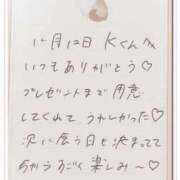 12月12日 Kくんへ
いつもありがとう♡
プレゼントまで用意
してくれてうれしかった♡
次に会う日も決まってて
今からすごく楽しみ〜♡